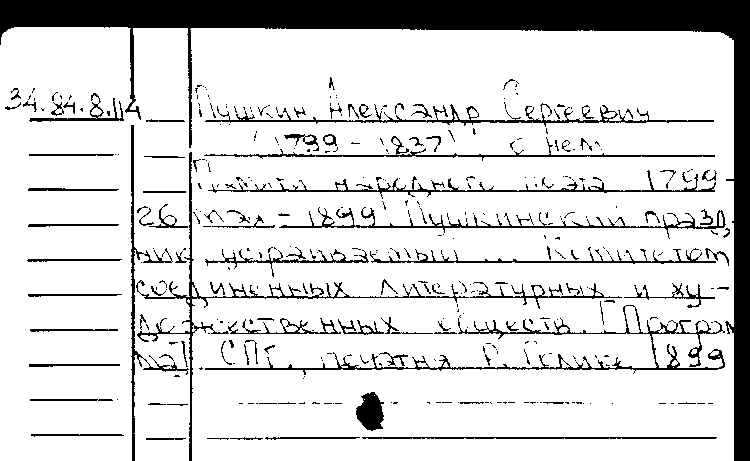 34.84.8.114 Пушкин, Александр Сергеевич
(1799 - 1837), о нем
Памяти народного поэта 1799 -
26 мая - 1899. Пушкинский празд-
ник, устраиваемый ... Комитетом
соединенных литературных и ху-
дожественных обществ. [Програм
ма]. СПГ., печатня Р. Голике, 1899